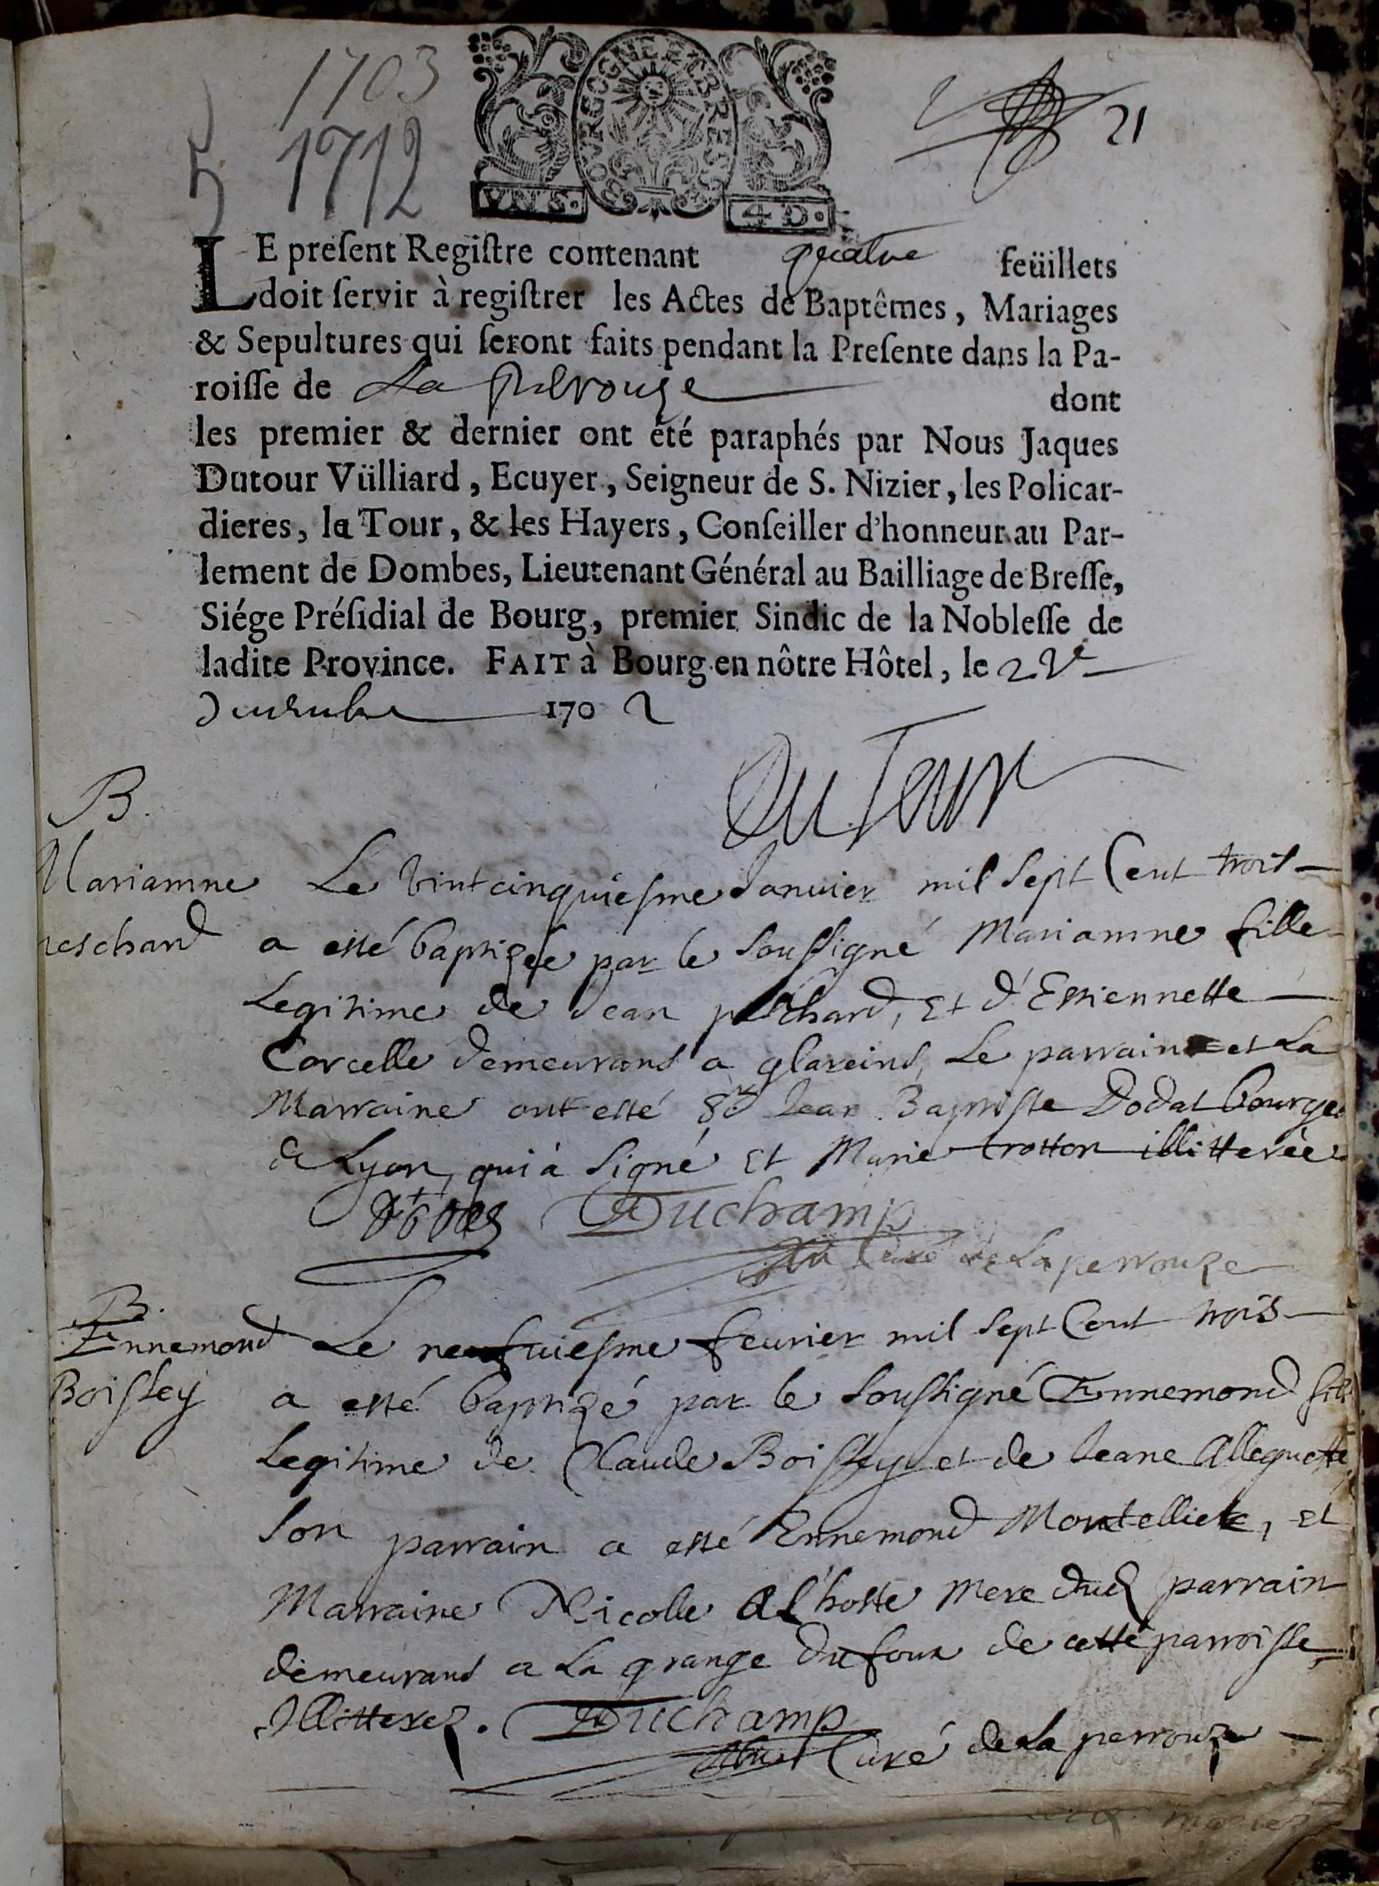 1703
5 1712
BOURGOGNE ET BRESSE
VN S. 4 D.
21
LE present Registre contenant quatre feüillets
doit servir à registrer les Actes de Baptêmes, Mariages
& Sepultures qui seront faits pendant la Presente dans la Pa-
roisse de La Peirouze dont
les premier & dernier ont été paraphés par Nous Jaques
Dutour Vülliard, Ecuyer, Seigneur de S. Nizier, les Policar-
dieres, la Tour, & les Hayers, Conseiller d'honneur au Par-
lement de Dombes, Lieutenant Général au Bailliage de Bresse,
Siége Présidial de Bourg, premier Sindic de la Noblesse de
ladite Province. FAIT à Bourg en nôtre Hôtel, le
1702
Du Tour
B.
Mariamne
peschard
Le vintcinquiesme Janvier mil sept Cent trois
a esté baptizée par le soussigné Mariamne fille
Legitime de Jean peschard, Et d'Estiennette
Corcelle demeurans a glareins, Le parrain et La
Marraine ont esté Sr Jean Baptiste Dodat bourgeo
de Lyon, qui à signé Et Marie trotton illitterée
Duchamp
Curé de La perrouze
B.
Ennemond
Boissey
Le neufuiesme feurier mil sept Cent trois
a esté baptizé par le soussigné Ennemond fils
Legitime de Claude Boissey et de Jeane Alleguette
son parrain a esté Ennemond Montellier, Et
Marraine Nicolle L'hoste Mere dud parrain
demeurans a La grange du four de cette parroisse
Illitterez. Duchamp
Curé de La perrouze